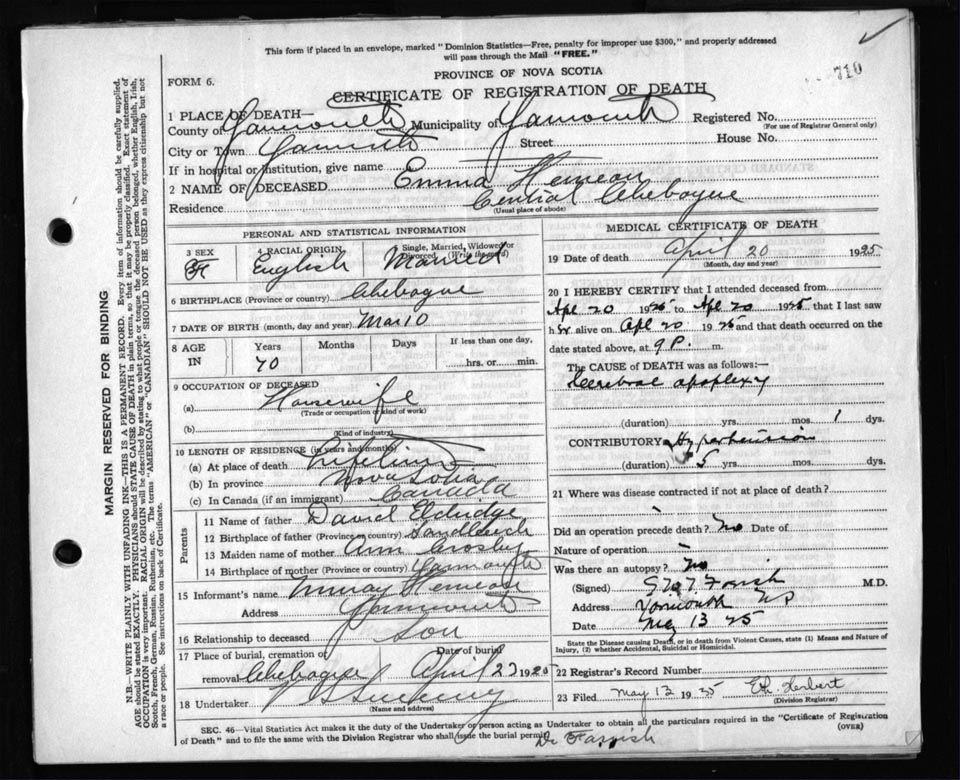 This form if placed in an envelope, marked "Dominion Statistics—Free, penalty for improper use $300," and properly addressed
will pass through the Mail "FREE."
710
PROVINCE OF NOVA SCOTIA
FORM 6.
CERTIFICATE OF REGISTRATION OF DEATH
1 PLACE OF DEATH—
County of Yarmouth Municipality of Yarmouth Registered No.
(For use of Registrar General only)
City or Town Yarmouth Street House No.
If in hospital or institution, give name
2 NAME OF DECEASED Emma Hemeon
Residence Central Chebogue
(Usual place of abode)
PERSONAL AND STATISTICAL INFORMATION
3 SEX 4 RACIAL ORIGIN Single, Married, Widowed or Divorced (Write the word)
F English Married
6 BIRTHPLACE (Province or country) Chebogue
7 DATE OF BIRTH (month, day and year) Mar 10
8 AGE IN Years Months Days If less than one day,
70 hrs. or min.
9 OCCUPATION OF DECEASED
(a) Housewife
(Trade or occupation or kind of work)
(b)
(Kind of industry)
10 LENGTH OF RESIDENCE (in years and months)
(a) At place of death Lifetime
(b) In province Nova Scotia
(c) In Canada (if an immigrant) Canada
Parents
11 Name of father David Eldridge
12 Birthplace of father (Province or country) Sandbeach
13 Maiden name of mother Ann Crosby
14 Birthplace of mother (Province or country) Yarmouth
15 Informant's name Murray Hemeon
Address Yarmouth
16 Relationship to deceased Son
17 Place of burial, cremation or removal Date of burial
Chebogue April 23 1925
18 Undertaker
MEDICAL CERTIFICATE OF DEATH
19 Date of death April 20 1925
(Month, day and year)
20 I HEREBY CERTIFY that I attended deceased from
Apl 20 1925 to Apl 20 1925 that I last saw
her alive on Apl 20 1925 and that death occurred on the
date stated above, at 9 P. m.
The CAUSE OF DEATH was as follows:—
Cerebral apoplexy
(duration) yrs. mos. 1 dys.
CONTRIBUTORY Hypertension
(duration) 5 yrs. mos. dys.
21 Where was disease contracted if not at place of death?
Did an operation precede death? No Date of
Nature of operation
Was there an autopsy? No
(Signed) Farish M.D.
Address Yarmouth NS
Date May 13 25
State the Disease causing Death, or in death from Violent Causes, state (1) Means and Nature of
Injury, (2) whether Accidental, Suicidal or Homicidal.
22 Registrar's Record Number
23 Filed May 13 1925 Herbert
(Division Registrar)
SEC. 46—Vital Statistics Act makes it the duty of the Undertaker or person acting as Undertaker to obtain all the particulars required in the "Certificate of Registration
of Death" and to file the same with the Division Registrar who shall issue the burial permit. (OVER)
Dr Farish
MARGIN RESERVED FOR BINDING
N.B.—WRITE PLAINLY WITH UNFADING INK—THIS IS A PERMANENT RECORD. Every item of information should be carefully supplied.
AGE should be stated EXACTLY. PHYSICIANS should STATE CAUSE OF DEATH in plain terms, so that it may be properly classified. Exact statement of
OCCUPATION is very important. RACIAL ORIGIN will be described by stating to what people or tongue the deceased person belonged, whether English, Irish,
Scotch, French, German, Russian, Ruthenian, etc. The terms "AMERICAN" or "CANADIAN" SHOULD NOT BE USED as they express citizenship but not
a race or people. See instructions on back of Certificate.